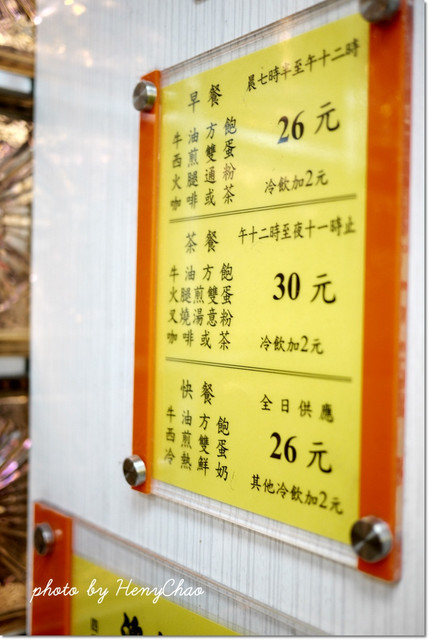 早餐 晨七時半至午十二時
牛油方飽
西煎雙蛋
火腿通粉
咖啡或茶
26元
冷飲加2元
茶餐 午十二時至夜十一時止
牛油方飽
火腿煎雙蛋
叉燒湯意粉
咖啡或茶
30元
冷飲加2元
快餐 全日供應
牛油方飽
西煎雙蛋
冷熱鮮奶
26元
其他冷飲加2元
photo by HenyChao